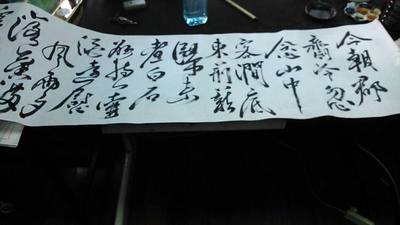 今朝郡
齋冷忽
念山中
客澗底
束荆薪
歸來
煮白石
欲持一瓢
酒遠慰
風雨夕
落葉滿